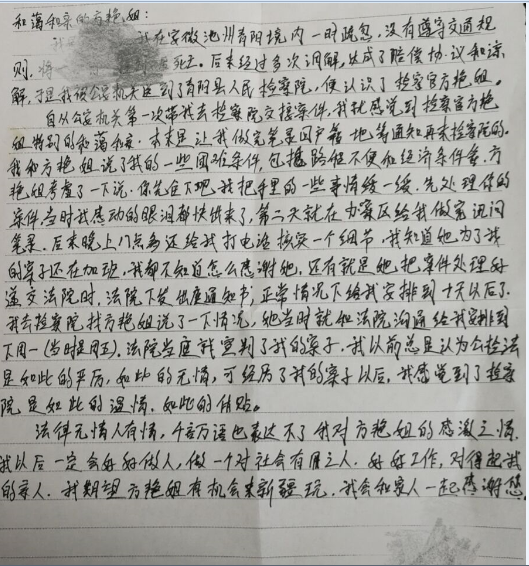 和蔼和亲的方艳姐：
我在安徽池州青阳境内一时疏忽，没有遵守交通规
则，将 死亡。后来经过多次调解，达成了赔偿协议和谅
解，于是我被公安机关 到了青阳县人民检察院，便认识了检察官方艳姐。
自从公安机关第一次带我去检察院交接案件，我就感觉到检察官方艳
姐特别的和蔼和亲。本来是让我做完笔录回户籍地等通知再来检察院的。
我和方艳姐说了我的一些困难条件，包括路程不便和经济条件等，方
艳姐考虑了一下说，你先坐下吧，我把手里的一些事情缓一缓，先处理你的
案件，当时我感动的眼泪都快出来了，第二天就在办案区给我做完讯问
笔录。后来晚上八点多还给我打电话核实一个细节，我知道她为了我
的案子还在加班，我都不知道怎么感谢她，还有就是她把案件处理好
递交法院时，法院下发出庭通知书，正常情况下给我安排到十天以后了。
我去检察院找方艳姐说了一下情况，她当时就和法院沟通给我安排到
下周一(当时是周五)。法院当庭就宣判了我的案子。我以前总是认为公检法
是如此的严厉，如此的无情，可经历了我的案子以后，我感觉到了检察
院是如此的温情，如此的体贴。
法律无情人有情，千言万语也表达不了我对方艳姐的感激之情，
我以后一定会好好做人，做一个对社会有用之人，好好工作，对得起我
的家人，我期望方艳姐有机会来新疆玩，我会和家人一起感谢您